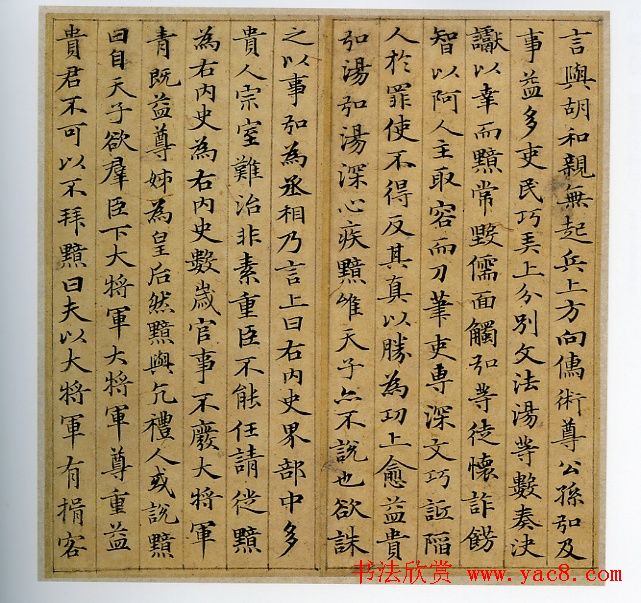 言與胡和親無起兵上方向儒術尊公孫弘及
事益多吏民巧弄上分別文法湯等數奏決
讞以幸而黯常毀儒面觸弘等徒懷詐飾
智以阿人主取容而刀筆吏專深文巧詆陷
人於罪使不得反其真以勝為功上愈益貴
弘湯弘湯深心疾黯唯天子亦不說也欲誅
之以事弘為丞相乃言上曰右內史界部中多
貴人宗室難治非素重臣不能任請徙黯
為右內史為右內史數歲官事不廢大將軍
青既益尊姊為皇后然黯與亢禮人或說黯
曰自天子欲羣臣下大將軍大將軍尊重益
貴君不可以不拜黯曰夫以大將軍有揖客
书法欣赏 www.yac8.com